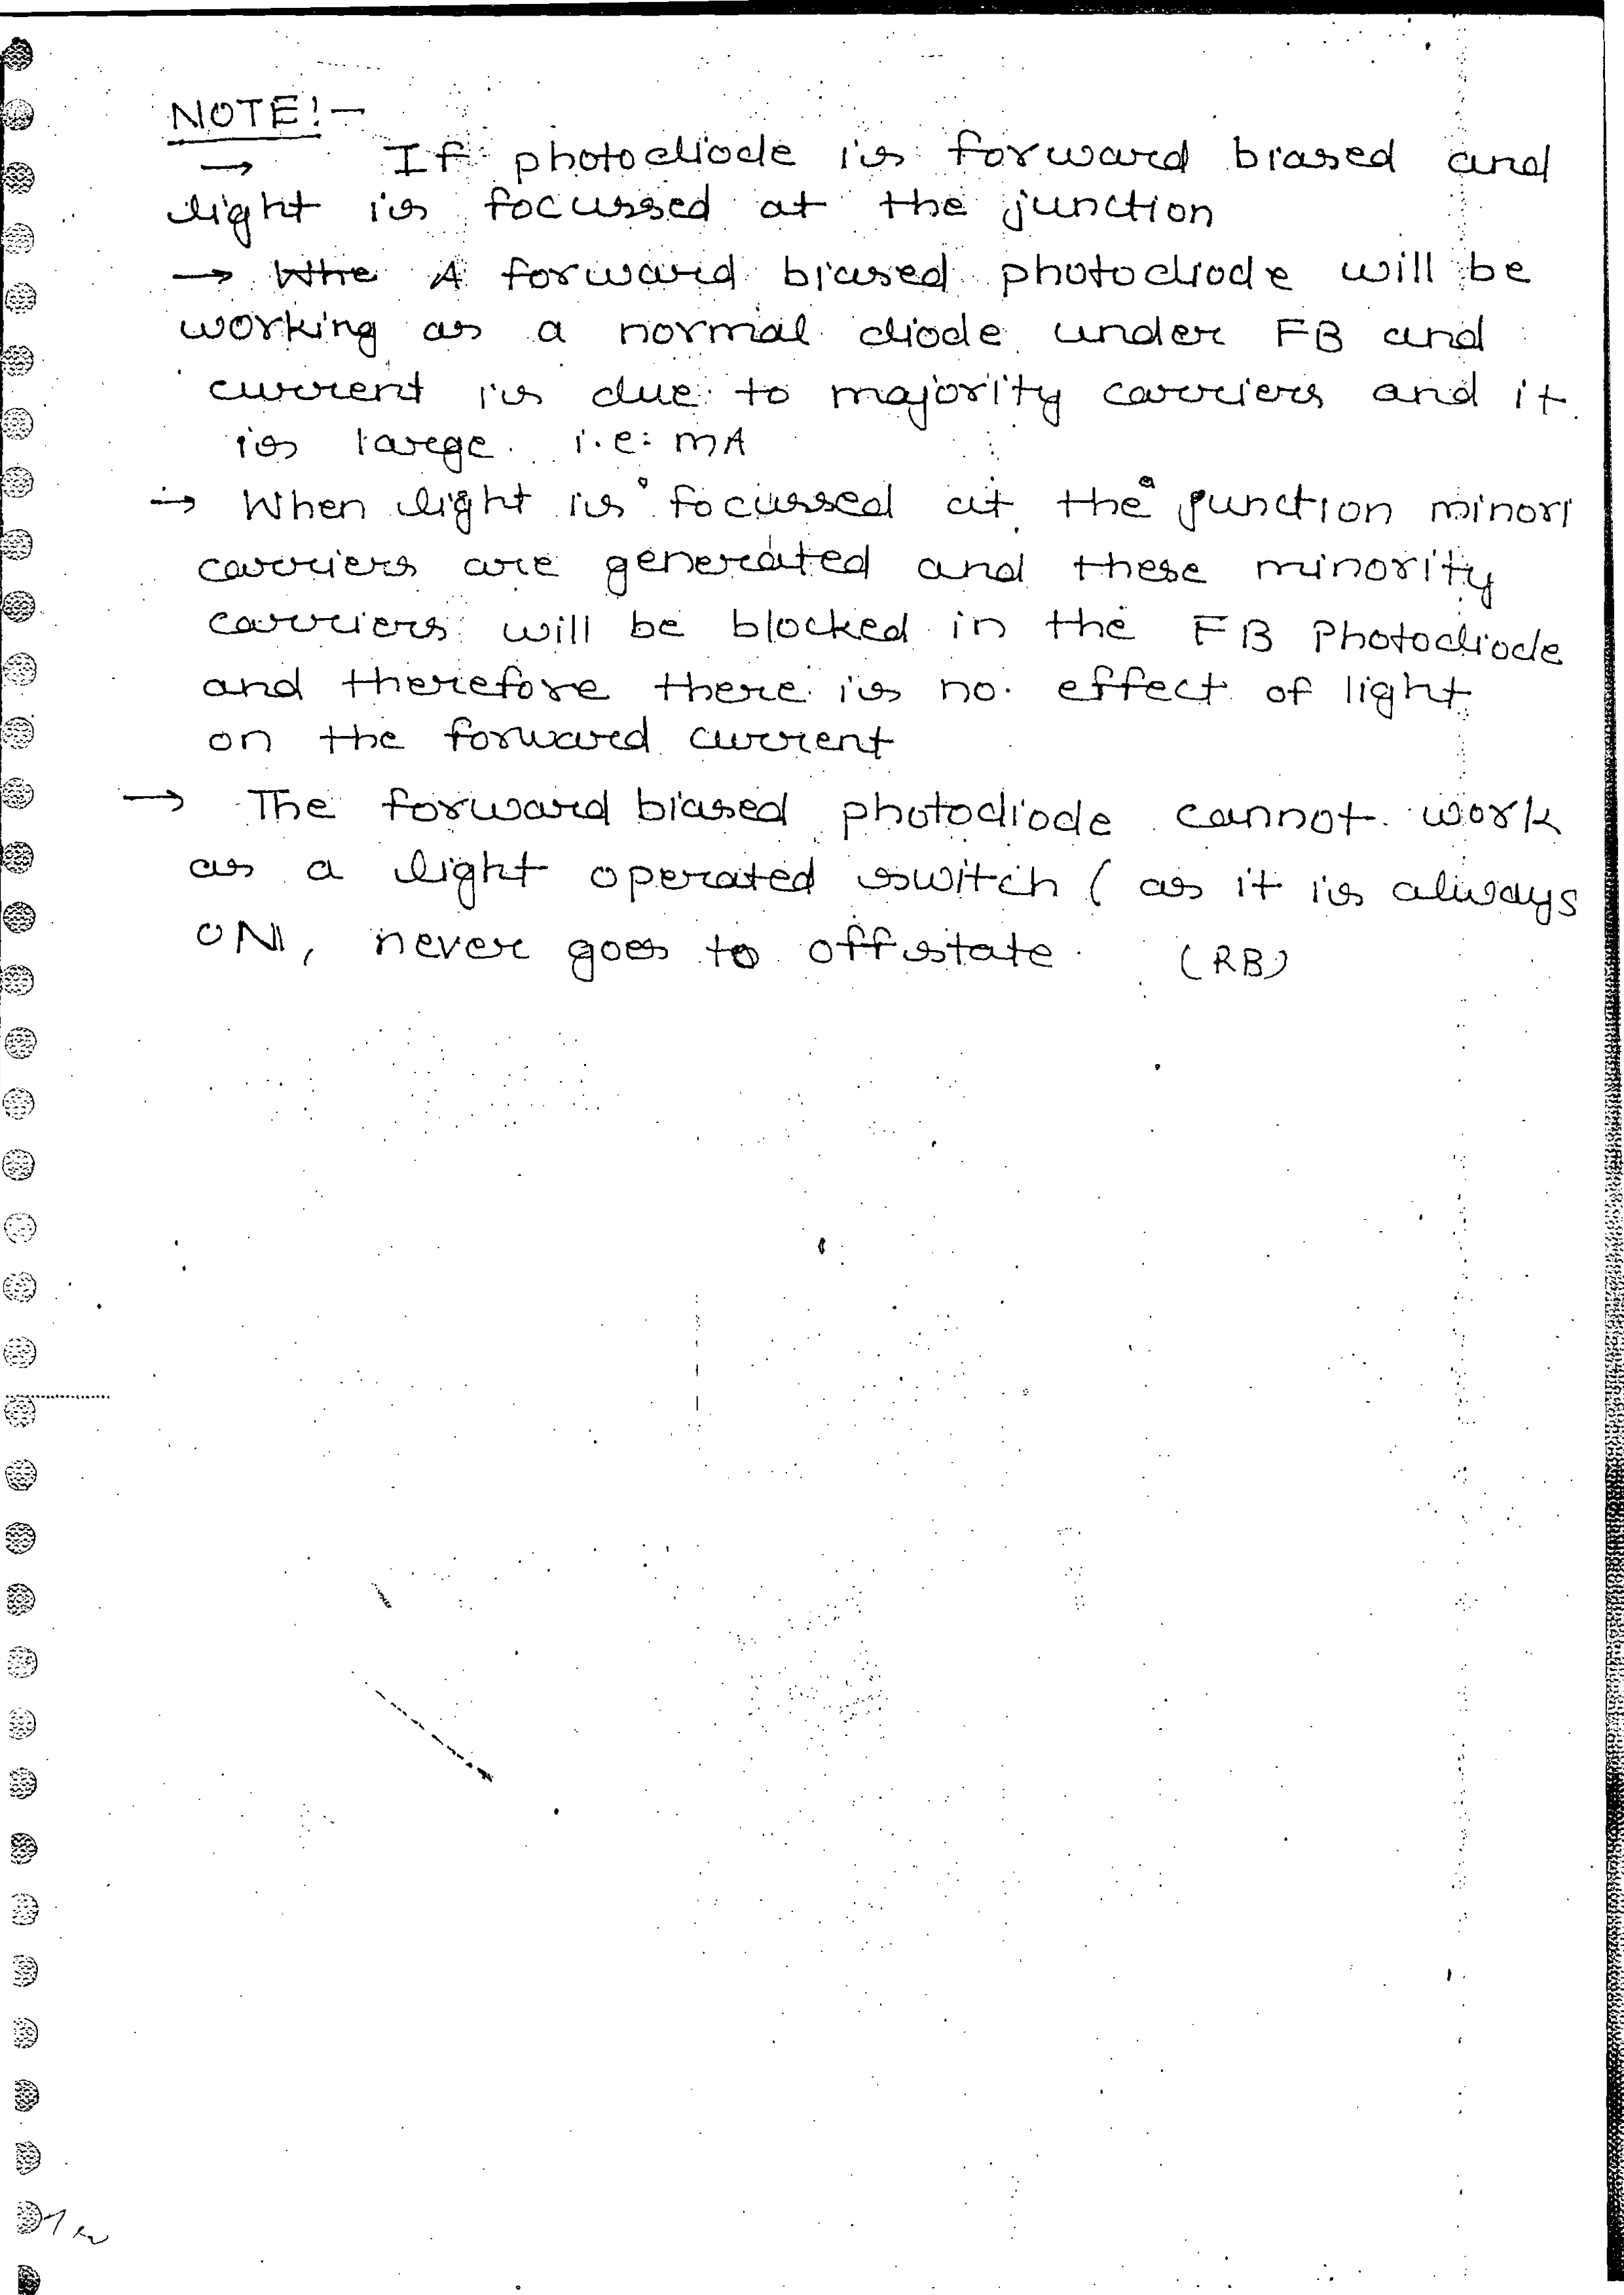 NOTE!-
→ If photodiode is forward biased and
light is focussed at the junction
→ A forward biased photodiode will be
working as a normal diode under FB and
current is due to majority carriers and it
is large. i.e: mA
→ When light is focussed at the junction minori
carriers are generated and these minority
carriers will be blocked in the FB Photodiode
and therefore there is no effect of light
on the forward current
→ The forward biased photodiode cannot work
as a light operated switch ( as it is always
ON, never goes to off state. (RB)